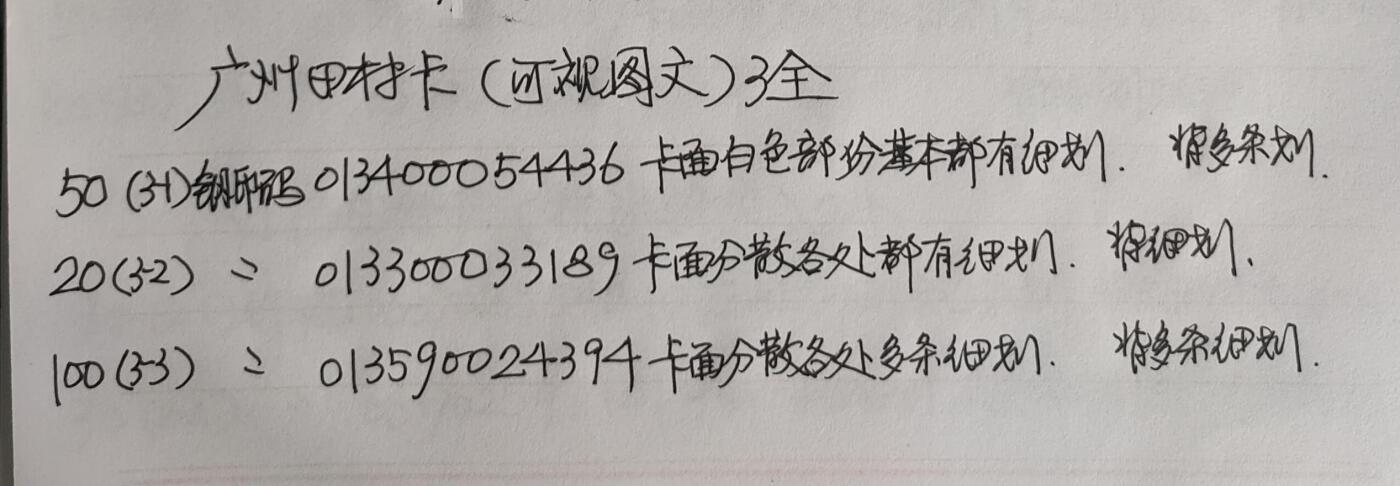 广州田村卡（可视图文）3全
50（3-1）钢印码 013400054436 卡面白色部份基本都有细划. 多条划.
20（3-2） 〃 013300033189 卡面分散各处都有细划. 细划.
100（3-3） 〃 013590024394 卡面分散各处多条细划. 多条细划.